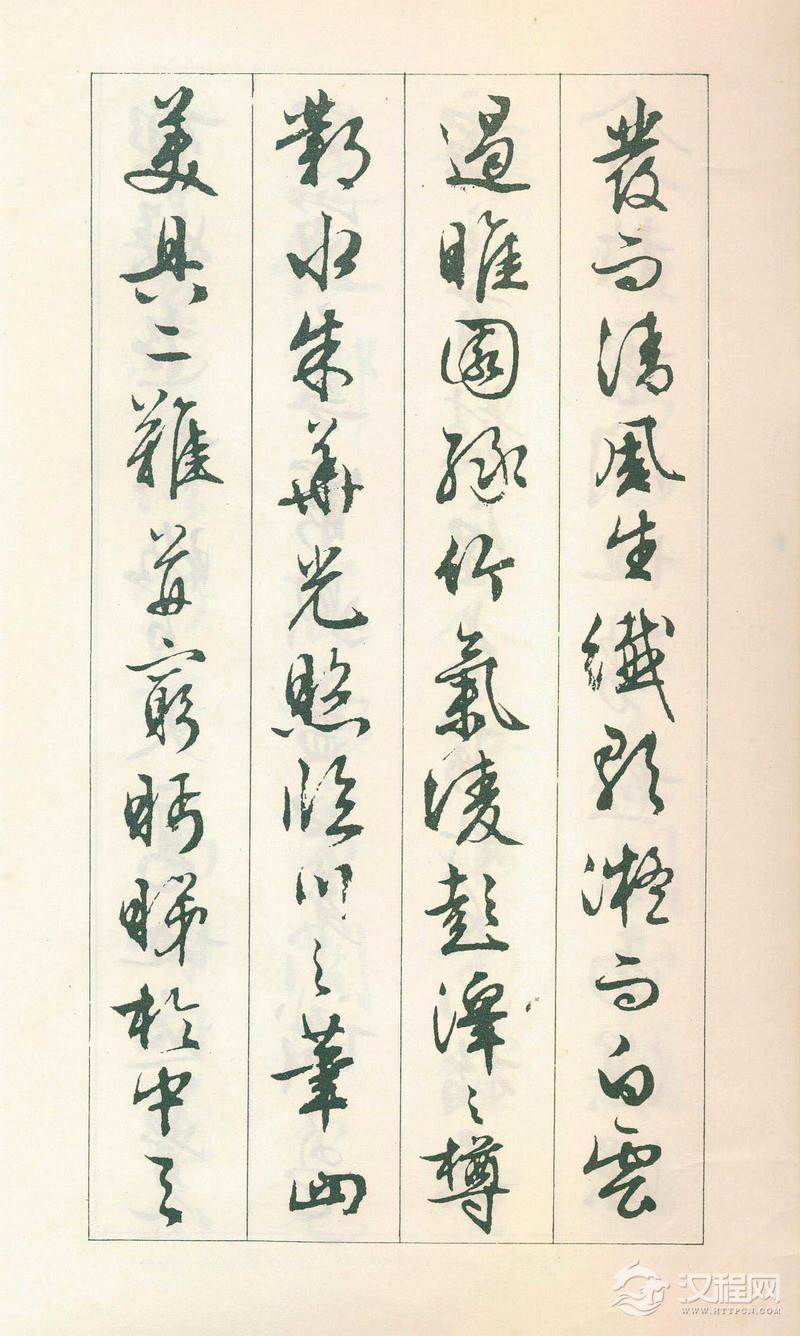 發而清風生纖歌凝而白雲
遏睢園綠竹氣淩彭澤之樽
鄴水朱華光照臨川之筆四
美具二難並窮眄睇於中天
汉程网
WWW.HTTPCN.COM